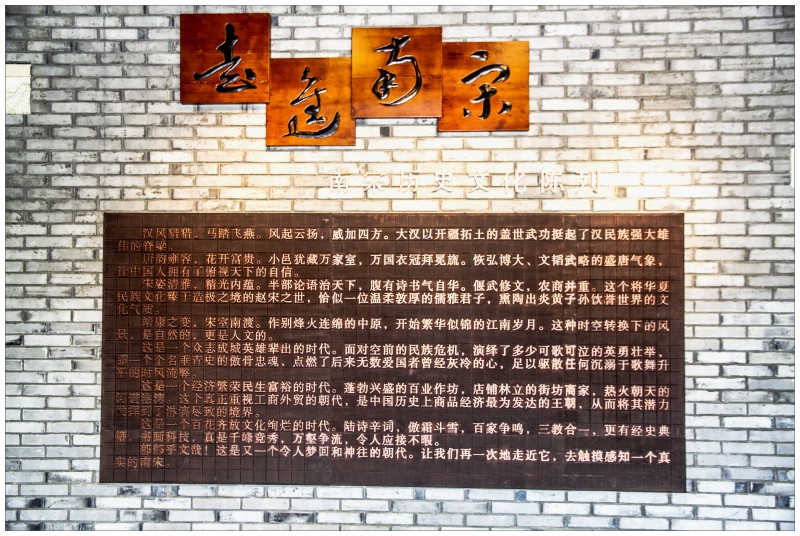 走进南宋
南宋历史文化陈列
汉风猎猎。马踏飞燕。风起云扬，威加四方。大汉以开疆拓土的盖世武功挺起了汉民族强大雄
伟的脊梁。
唐韵雍容，花开富贵。小邑犹藏万家室，万国衣冠拜冕旒。恢弘博大、文韬武略的盛唐气象，
让中国人拥有了俯视天下的自信。
宋姿清雅，精光内蕴。半部论语治天下，腹有诗书气自华。偃武修文，农商并重。这个将华夏
民族文化臻于造极之境的赵宋之世，恰似一位温柔敦厚的儒雅君子，熏陶出炎黄子孙饮誉世界的文
化气质。
靖康之变，宋室南渡。作别烽火连绵的中原，开始繁华似锦的江南岁月。这种时空转换下的风
景，是自然的，更是人文的。
这是一个众志成城英雄辈出的时代。面对空前的民族危机，演绎了多少可歌可泣的英勇壮举，
那一个个名垂青史的傲骨忠魂，点燃了后来无数爱国者曾经灰冷的心，足以驱散任何沉溺于歌舞升
平的时风流弊。
这是一个经济繁荣民生富裕的时代。蓬勃兴盛的百业作坊，店铺林立的街坊商家，热火朝天的
河道港湾。这个真正重视工商外贸的朝代，是中国历史上商品经济最为发达的王朝，从而将其潜力
发挥到了淋漓尽致的境界。
这是一个百花齐放文化绚烂的时代。陆诗辛词，傲霜斗雪，百家争鸣，三教合一，更有经史典
籍，书画科技，真是千峰竞秀，万壑争流，令人应接不暇。
郁郁乎文哉！这是又一个令人梦回和神往的朝代。让我们再一次地走近它，去触摸感知一个真
实的南宋。